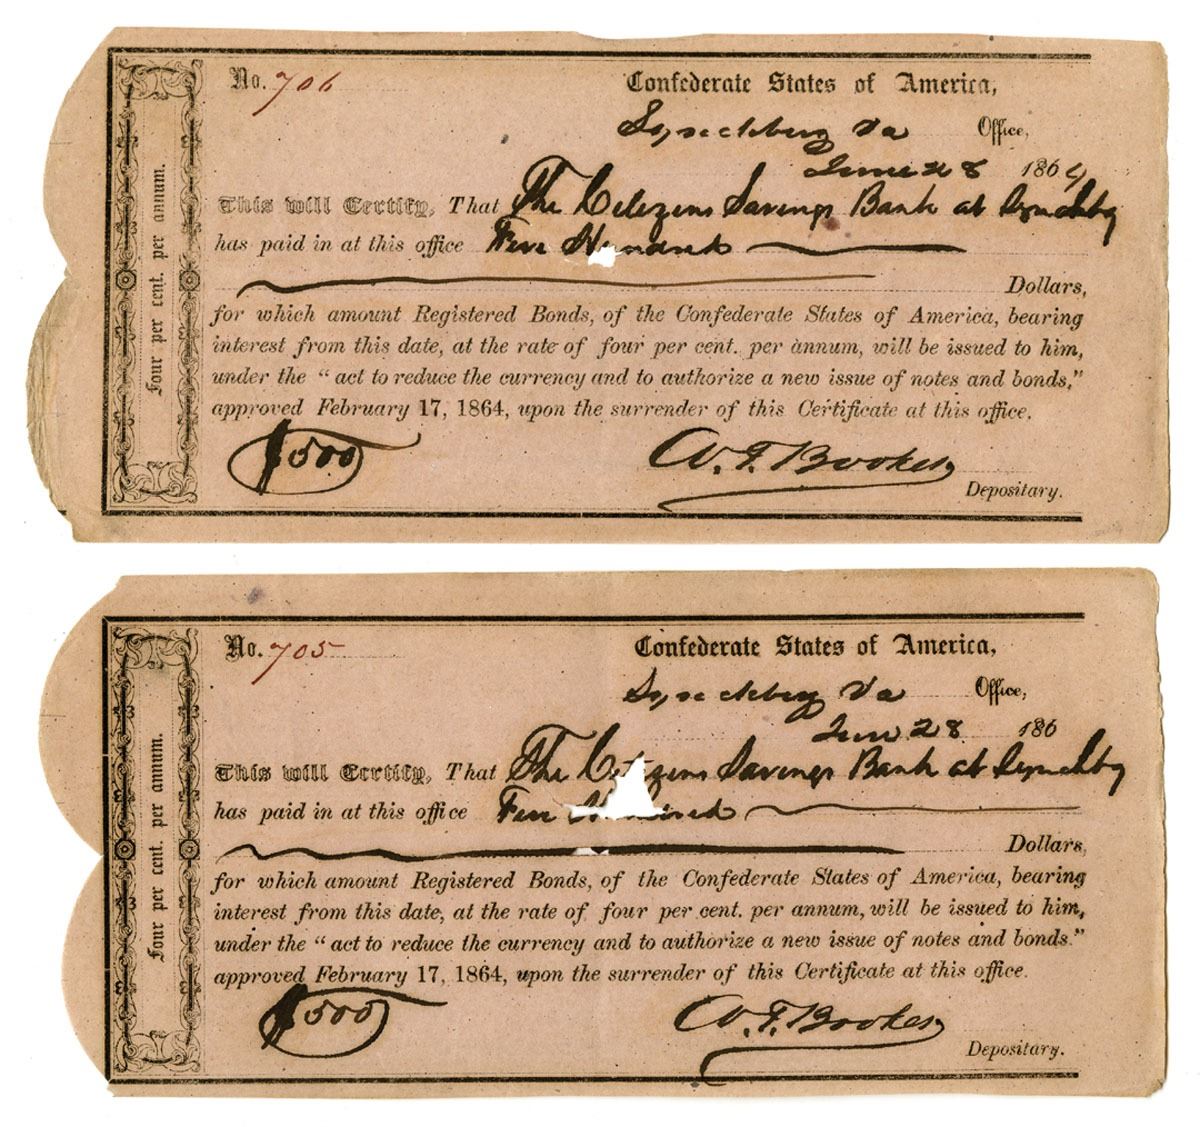 No. 706
Confederate States of America,
Lynchburg Va Office,
June 28 1864
This will Certify, That The Citizens Savings Bank at Lynchbg
has paid in at this office Five Hundred
Dollars,
for which amount Registered Bonds, of the Confederate States of America, bearing
interest from this date, at the rate of four per cent. per annum, will be issued to him,
under the “act to reduce the currency and to authorize a new issue of notes and bonds,”
approved February 17, 1864, upon the surrender of this Certificate at this office.
$500
W. F. Booker
Depositary.
Four per cent. per annum.
No. 705
Confederate States of America,
Lynchburg Va Office,
June 28 186
This will Certify, That The Citizens Savings Bank at Lynchbg
has paid in at this office Five Hundred
Dollars,
for which amount Registered Bonds, of the Confederate States of America, bearing
interest from this date, at the rate of four per cent. per annum, will be issued to him,
under the “act to reduce the currency and to authorize a new issue of notes and bonds.”
approved February 17, 1864, upon the surrender of this Certificate at this office.
$500
W. F. Booker
Depositary.
Four per cent. per annum.